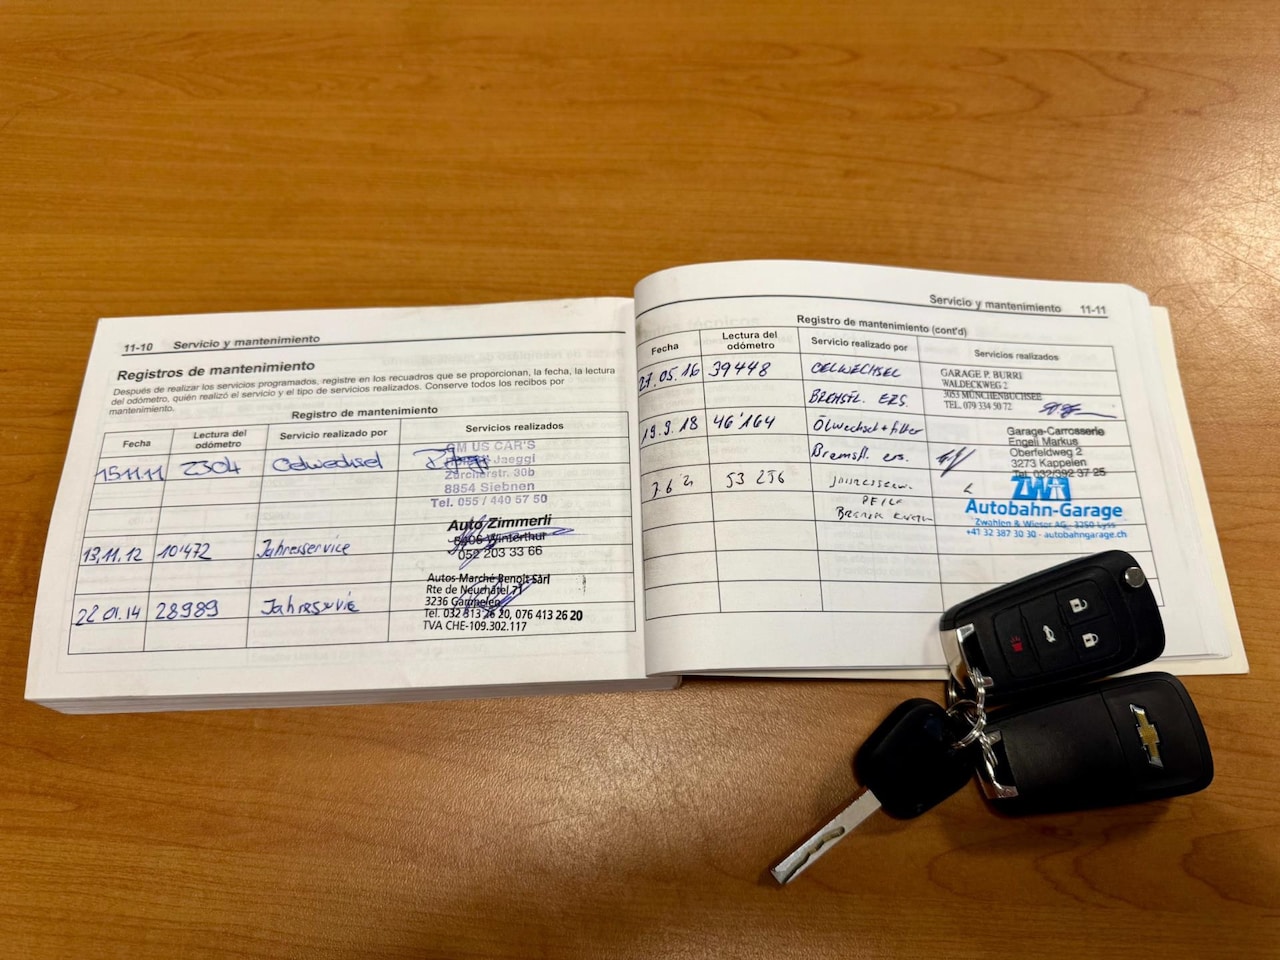 11-10 Servicio y mantenimiento
Registros de mantenimiento
Después de realizar los servicios programados, registre en los recuadros que se proporcionan, la fecha, la lectura
del odómetro, quién realizó el servicio y el tipo de servicios realizados. Conserve todos los recibos por
mantenimiento.
Registro de mantenimiento
Fecha Lectura del odómetro Servicio realizado por Servicios realizados
15.11.11 2304 Oelwechsel
GM US CAR'S
Jaeggi
Zürcherstr. 30b
8854 Siebnen
Tel. 055 / 440 57 50
13.11.12 10'472 Jahresservice
Auto Zimmerli
8406 Winterthur
052 203 33 66
22.01.14 28989 Jahreservie
Autos Marché Benoit Sàrl
Rte de Neuchâtel 71
3236 Gampelen
Tel. 032 313 26 20, 076 413 26 20
TVA CHE-109.302.117
Servicio y mantenimiento 11-11
Registro de mantenimiento (cont'd)
Fecha Lectura del odómetro Servicio realizado por Servicios realizados
27.05.16 39448 OELWECHSEL
BREMSFL. ERS.
GARAGE P. BURRI
WALDECKWEG 2
3053 MÜNCHENBUCHSEE
TEL. 079 334 50 72
19.9.18 46'164 Ölwechsel + filter
Bremsfl. ers.
Garage-Carrosserie
Engeli Markus
Oberfeldweg 2
3273 Kappelen
Tel. 032/392 37 25
53 256
ZWA
Autobahn-Garage
Zwahlen & Wieser AG, 3250 Lyss
+41 32 387 30 30 - autobahngarage.ch